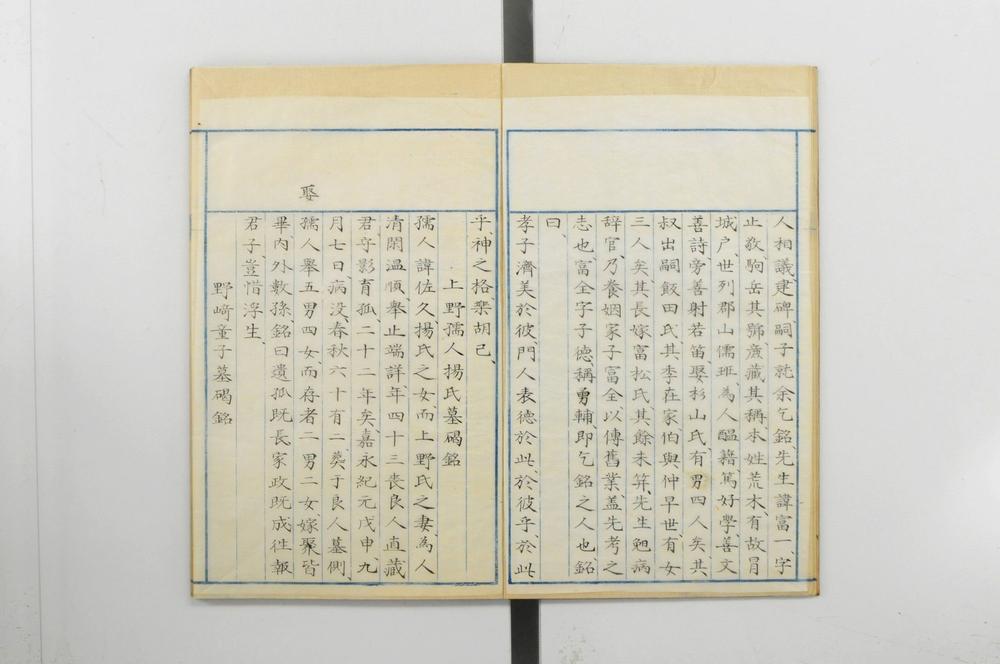 人相議、建碑嗣子就余乞銘、先生諱富一、字
止敬駒岳其號、慶藏其稱、本姓荒木、有故冒
城戸、世列郡山儒班、為人醞籍篤好學、善文
善詩、旁善射若笛、娶杉山氏、有男四人矣、其
叔出嗣飯田氏、其季在家、伯與仲早世、有女
三人矣、其長嫁富松氏、其餘未笄、先生廼病
辞官、乃養姻家子富全以傳舊業、蓋先考之
志也、富全字子德、稱勇輔、即乞銘之人也、銘
曰、
孝子濟美於彼、門人表德於此、於彼乎、於此
乎、神之格、樂胡已、
上野孺人揚氏墓碣銘
孺人諱佐久揚氏之女、而上野氏之妻、為人
清閑温順、舉止端詳、年四十三喪良人直藏
君、守影育孤二十二年矣、嘉永紀元戊申、九
月七日病没、春秋六十有二葬于良人墓側、
孺人舉五男四女、而存者二男二女、嫁聚皆
娶
畢、内外數孫、銘曰遺孤既長家政既成、往報
君子、豈惜浮生、
野﨑童子墓碣銘